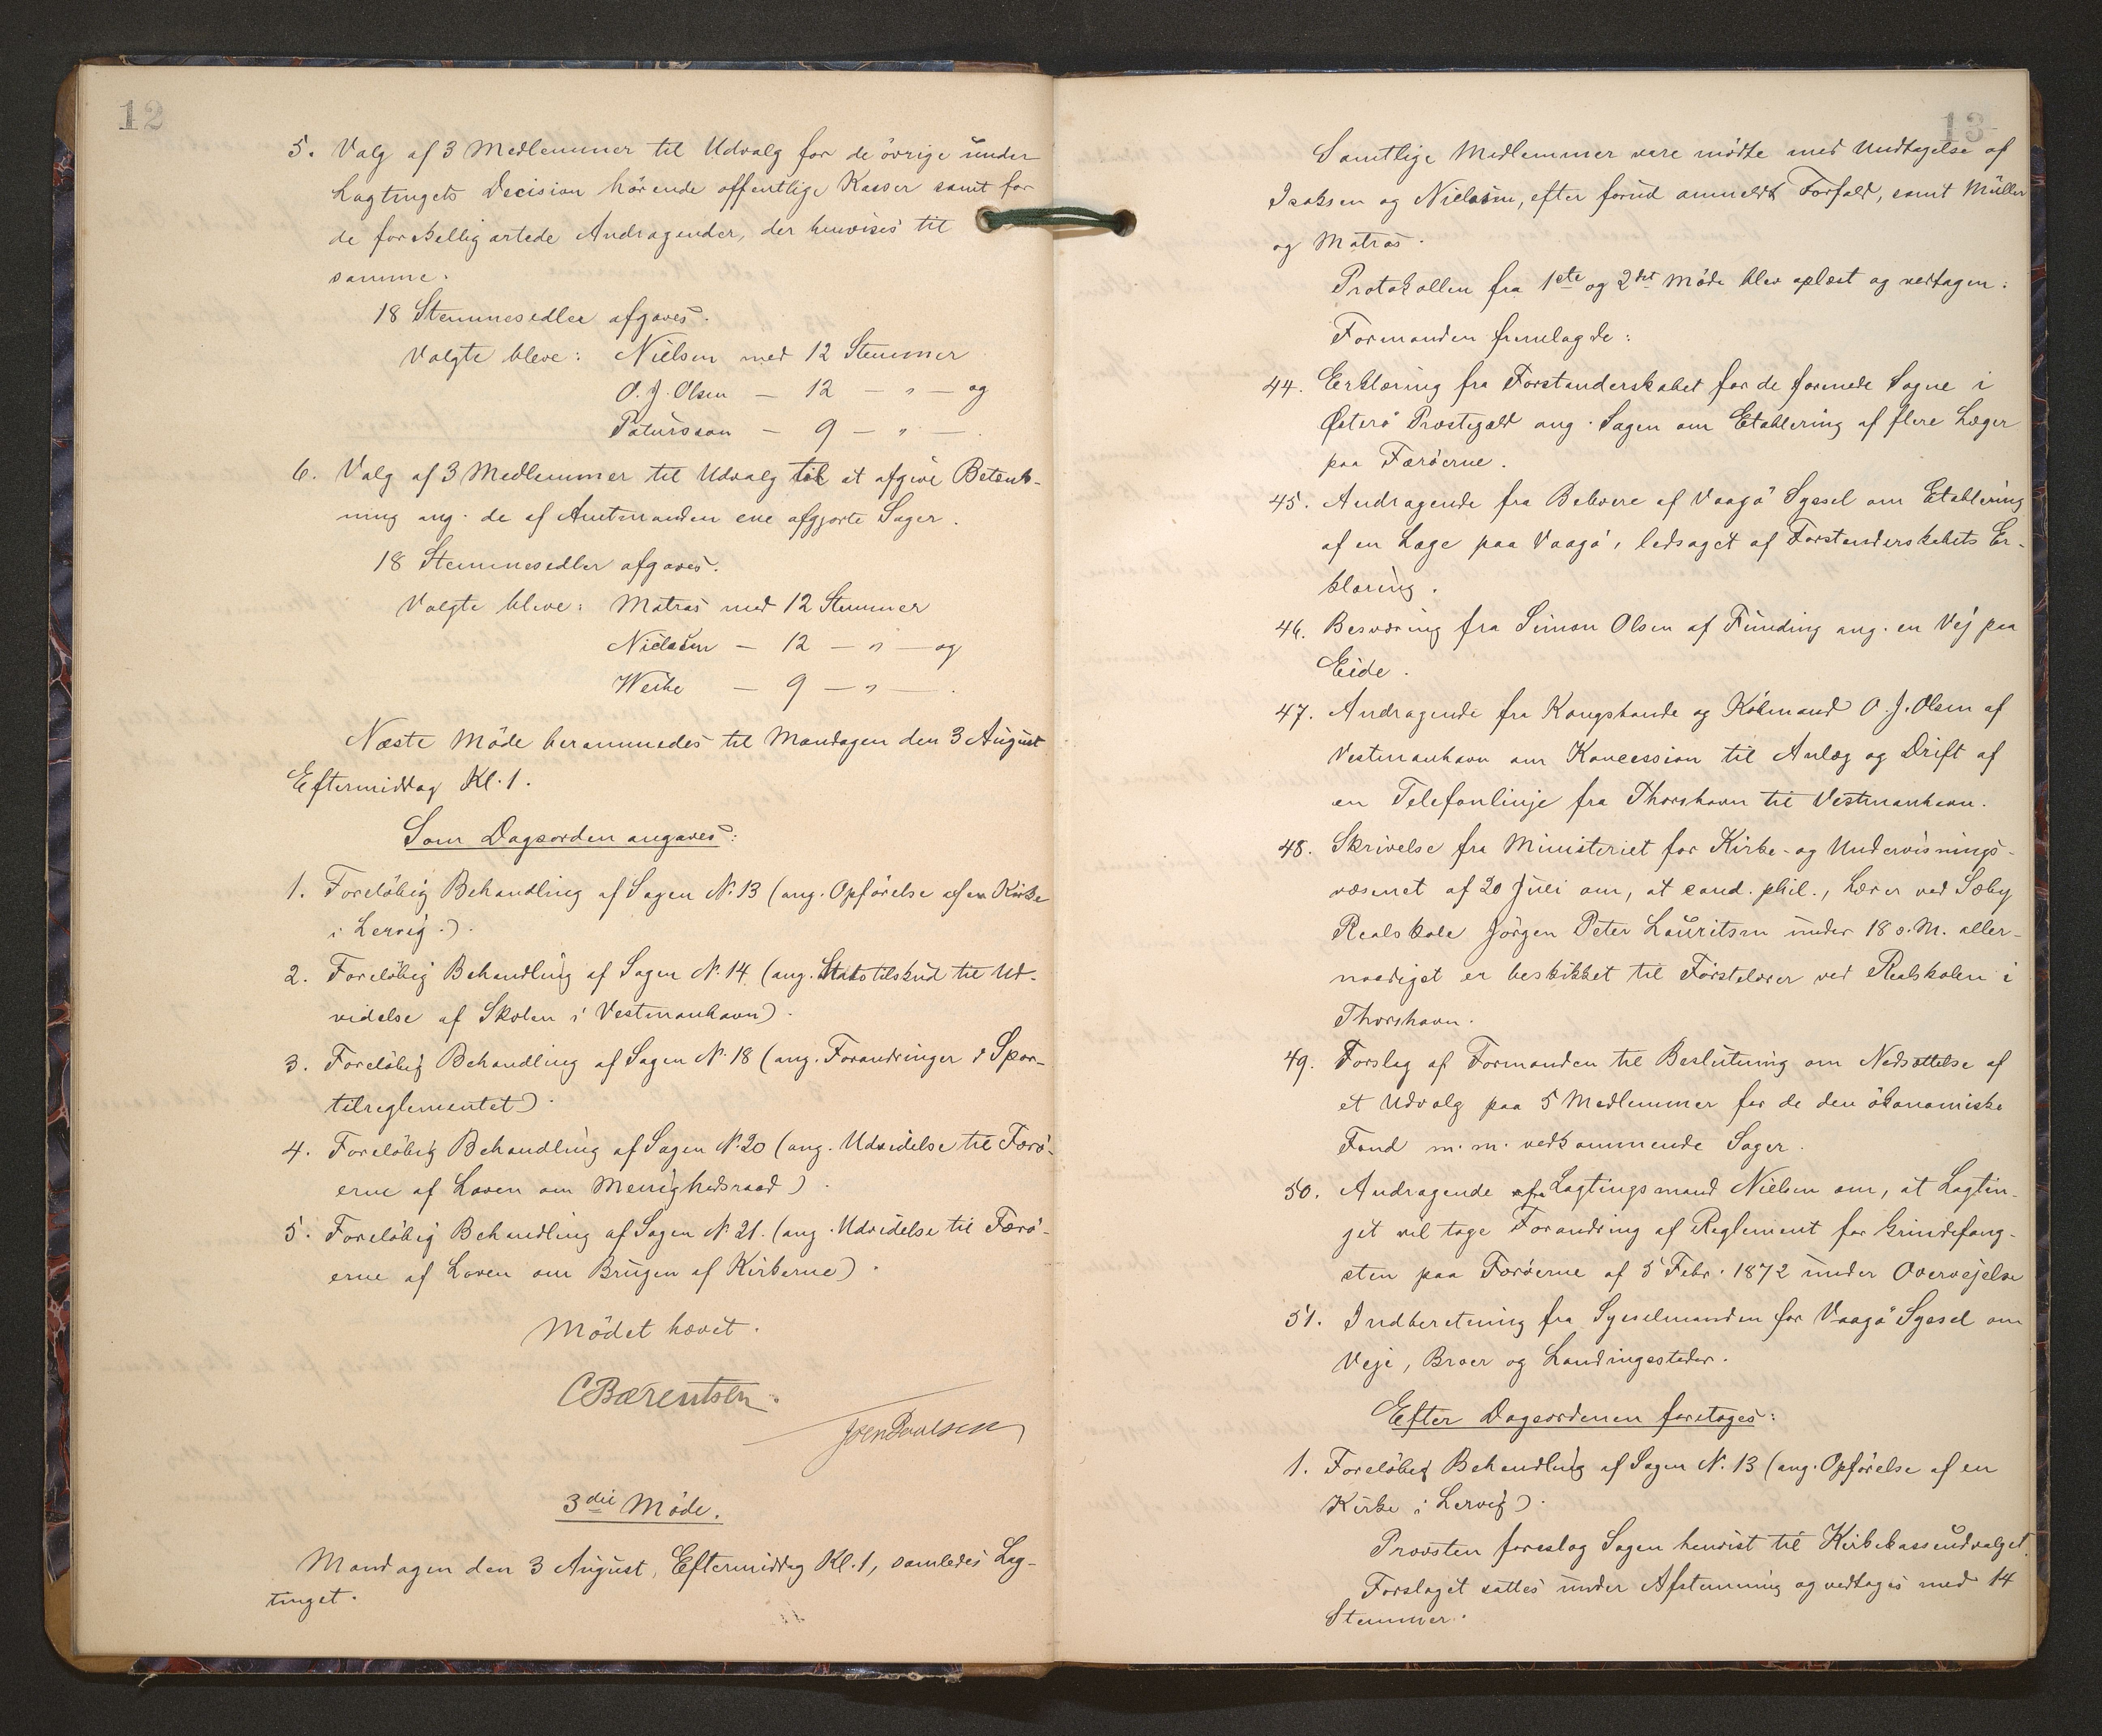 12
5. Valg af 3 Medlemmer til Udvalg for de övrige under
Lagtingets Decision hörende offentlige Kasser samt for
de forskelligartede Andragender, der henvises til
samme.
18 Stemmesedler afgaves.
Valgte bleve: Nielsen med 12 Stemmer
O. J. Olsen — 12 — " — og
Patursson — 9 — " — .
6. Valg af 3 Medlemmer til Udvalg til at afgive Betænk-
ning ang. de af Amtmanden ene afgjorte Sager.
18 Stemmesedler afgaves.
Valgte bleve: Matras med 12 Stemmer
Nielsen — 12 — " — og
Weihe — 9 — " — .
Næste Möde berammedes til Mandagen den 3 August
Eftermiddag Kl. 1.
Som Dagsorden angaves:
1. Forelöbig Behandling af Sagen N. 13 (ang. Opförelse af en Kirke
i Lervig.).
2. Forelöbig Behandling af Sagen N. 14 (ang. Statstilskud til Ud-
videlse af Skolen i Vestmanhavn).
3. Forelöbig Behandling af Sagen N. 18 (ang. Forandringer i Spor-
tilreglementet).
4. Forelöbig Behandling af Sagen N. 20 (ang. Udvidelse til Færö-
erne af Loven om Menighedsraad).
5. Forelöbig Behandling af Sagen N. 21. (ang. Udvidelse til Færö-
erne af Loven om Brugen af Kirkerne).
Mödet hævet.
C Bærentsen.
Joen Poulsen
3die Möde.
Mandagen den 3 August, Eftermiddag Kl. 1, samledes Lag-
tinget.
13
Samtlige Medlemmer vare mödte med Undtagelse af
Isaksen og Nielsen, efter forud anmeldt Forfald, samt Müller
og Matras.
Protokollen fra 1ste og 2det Möde blev oplæst og vedtagen.
Formanden fremlagde:
44. Erklæring fra Forstanderskabet for de forenede Sogne i
Österö Præstegæld ang. Sagen om Etablering af flere Læger
paa Færöerne.
45. Andragende fra Beboere af Vaagö Syssel om Etablering
af en Læge paa Vaagö, ledsaget af Forstanderskabets Er-
klæring.
46. Besværing fra Simon Olsen af Funding ang. en Vej paa
Eide.
47. Andragende fra Kongsbonde og Köbmand O. J. Olsen af
Vestmanhavn om Koncession til Anlæg og Drift af
en Telefonlinje fra Thorshavn til Vestmanhavn.
48. Skrivelse fra Ministeriet for Kirke- og Undervisnings-
væsenet af 20 Juli om, at cand. phil., Lærer ved Sæby
Realskole Jörgen Peter Lauritsen under 18 s. M. aller-
naadigst er beskikket til Förstelærer ved Realskolen i
Thorshavn.
49. Forslag af Formanden til Beslutning om Nedsættelse af
et Udvalg paa 5 Medlemmer for de den ökonomiske
Fond m. m. vedkommende Sager.
50. Andragende fra Lagtingsmand Nielsen om, at Lagtin-
get vil tage Forandring af Reglement for Grindefang-
sten paa Færöerne af 5 Febr. 1872 under Overvejelse
51. Indberetning fra Sysselmanden for Vaagö Syssel om
Veje, Broer og Landingssteder.
Efter Dagsordenen foretoges:
1. Forelöbig Behandling af Sagen N. 13 (ang. Opförelse af en
Kirke i Lervig).
Provsten foreslog Sagen henvist til Kirkekasseudvalget.
Forslaget sattes under Afstemning og vedtoges med 14
Stemmer.